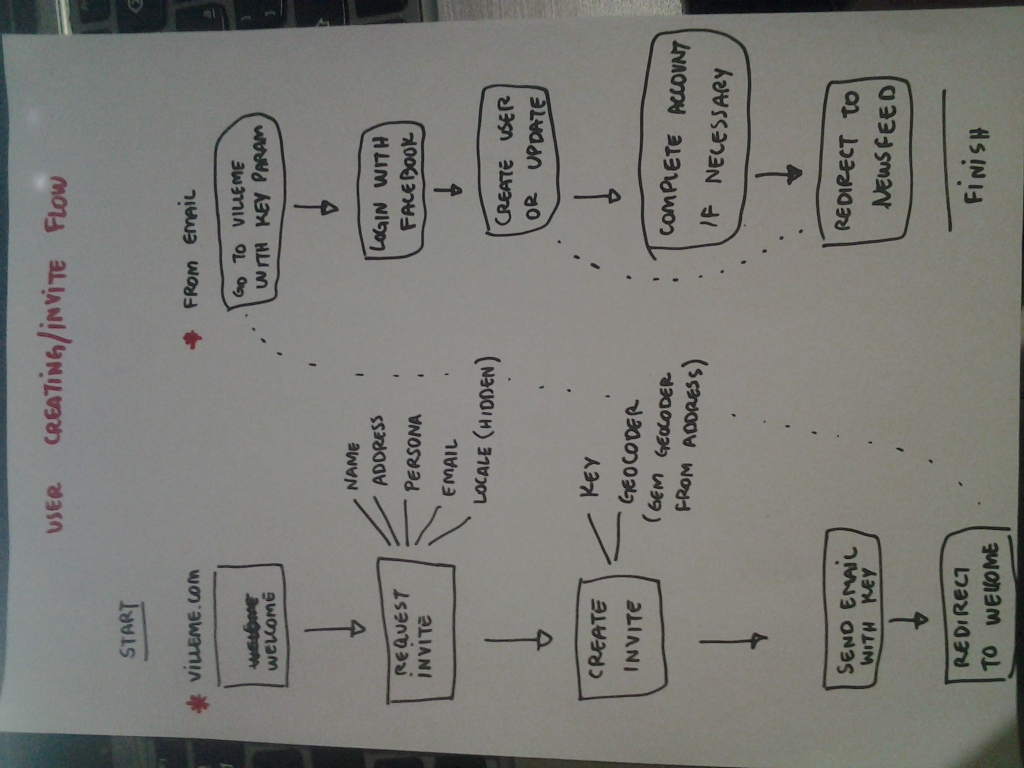 USER CREATING/INVITE FLOW
START
* VILLEME.COM
WELCOME
WELCOME
REQUEST
INVITE
NAME
ADDRESS
PERSONA
EMAIL
LOCALE (HIDDEN)
CREATE
INVITE
KEY
GEOCODER
(GEM GEOCODER
FROM ADDRESS)
SEND EMAIL
WITH KEY
REDIRECT
TO WELCOME
* FROM EMAIL
GO TO VILLEME
WITH KEY PARAM
LOGIN WITH
FACEBOOK
CREATE USER
OR UPDATE
COMPLETE ACCOUNT
IF NECESSARY
REDIRECT TO
NEWSFEED
FINISH